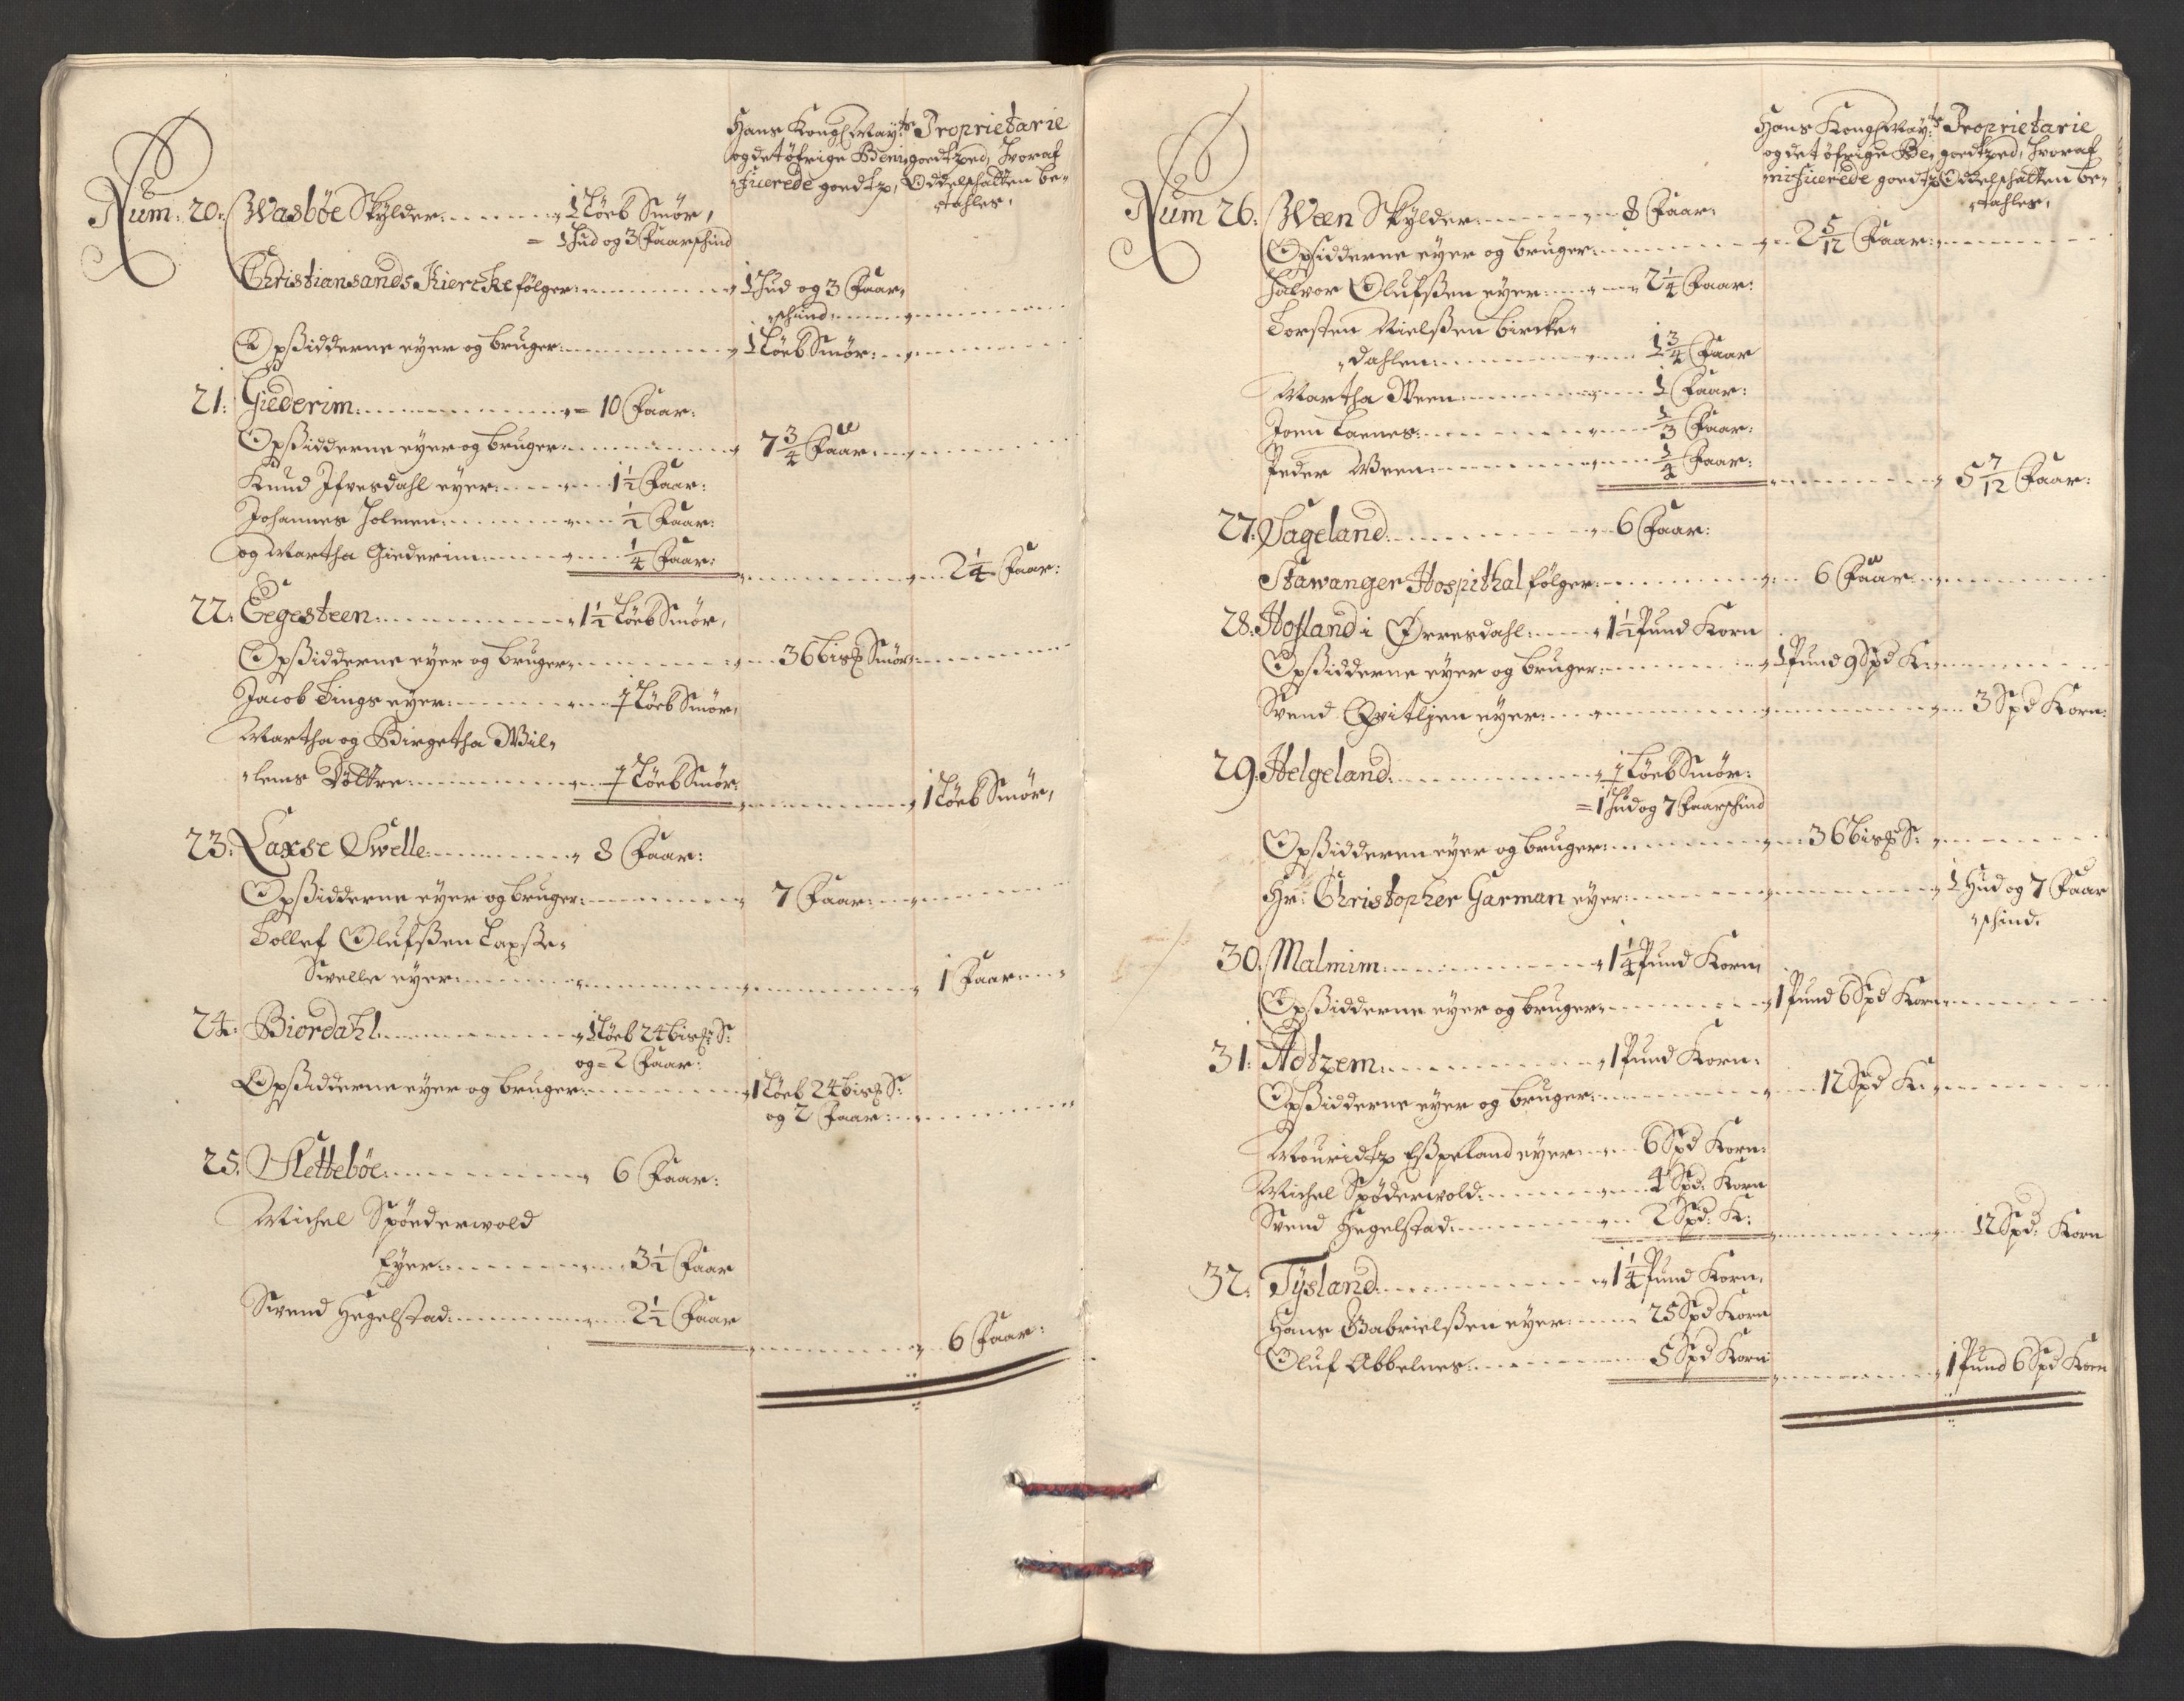 Hans Kongl Mayts Proprietarie
og det öfrige Beni„ goedtzed, hvoraf
„ficerede goedtz, Oddelschatten be„
„tahles,
Num: 20: Wasböe Skylder 1 Löeb Smör,
= 1 Hud og 3 Faarschind
Christiansands Kiercke fölger 1 Hud og 3 Faar„
„schind
Opsidderne eyer og bruger 1 Löeb Smör:
21: Giederim = 10 Faar:
Opsidderne eyer og bruger 7 3/4 Faar
Knud Ifvesdahl eyer 1 1/2 Faar:
Johannes Holmen 1/2 Faar:
og Martha Giederim 1/4 Faar: 2 1/4 Faar:
22: Eegesteen 1 1/2 Löeb Smör,
Opsidderne eyer og bruger 36 bisp Smör
Jacob Tings eyer 1/2 Löeb Smör,
Martha og Birgetha Wil„
„lems Döttre 1/2 Löeb Smör: 1 Löeb Smör,
23: Laxse Swelle 8 Faar:
Opsidderne eyer og bruger 7 Faar
Tollef Olufsen Laxse„
Swelle eyer 1 Faar
24: Biordahl 1 Löeb 24 bisp S:
og = 2 Faar:
Opsidderne eyer og bruger 1 Löeb 24 bisp S:
og 2 Faar
25: Slettebøe 6 Faar:
Michel Spöderwold
Eyer 3 1/2 Faar
Swend Hegelstad 2 1/2 Faar
6 Faar:
Hans Kongl Mayts Proprietarie
og det öfrige Be„ goedtzed, hvoraf
nificerede goedtz Oddelschatten be„
„tahles,
Num 26: Ween Skylder 8 Faar:
Opsidderne eyer og bruger 2 5/12 Faar
Halvor Olufsen eyer 2 1/4 Faar:
Torsten Nielsen Bircke„
„dahlen 1 3/4 Faar
Martha Ween 1 Faar:
Joen Laenes 1/3 Faar:
Peder Ween 1/4 Faar: 5 7/12 Faar:
27: Sageland 6 Faar:
Stawanger Hospithal fölger 6 Faar
28: Hofland i Ørresdahl 1 1/2 Pund Korn
Opsidderne eyer og bruger 1 Pund 9 Spd K:
Svend Qvitljen eyer 3 Spd Korn:
29: Helgeland 1/2 Löeb Smör:
= 1 Hud og 7 Faarschind
Opsidderen eyer og bruger 36 bisp S:
Hr: Christopher Garman eyer 1 Hud og 7 Faar
„schind.
30: Malmim 1 1/4 Pund Korn,
Opsidderne eyer og bruger 1 Pund 6 Spd Korn
31: Adtzem 1 Pund Korn:
Opsidderne eyer og bruger 12 Spd K:
Mouridtz Espeland eyer 6 Spd Korn:
Michel Spöderwold 4 Spd: Korn
Svend Hegelstad 2 Spd: K: 12 Spd: Korn
32: Tysland 1 1/4 Pund Korn,
Hans Gabrielsen eyer 25 Spd Korn
Oluf Abbelnes 5 Spd Korn 1 Pund 6 Spd Korn